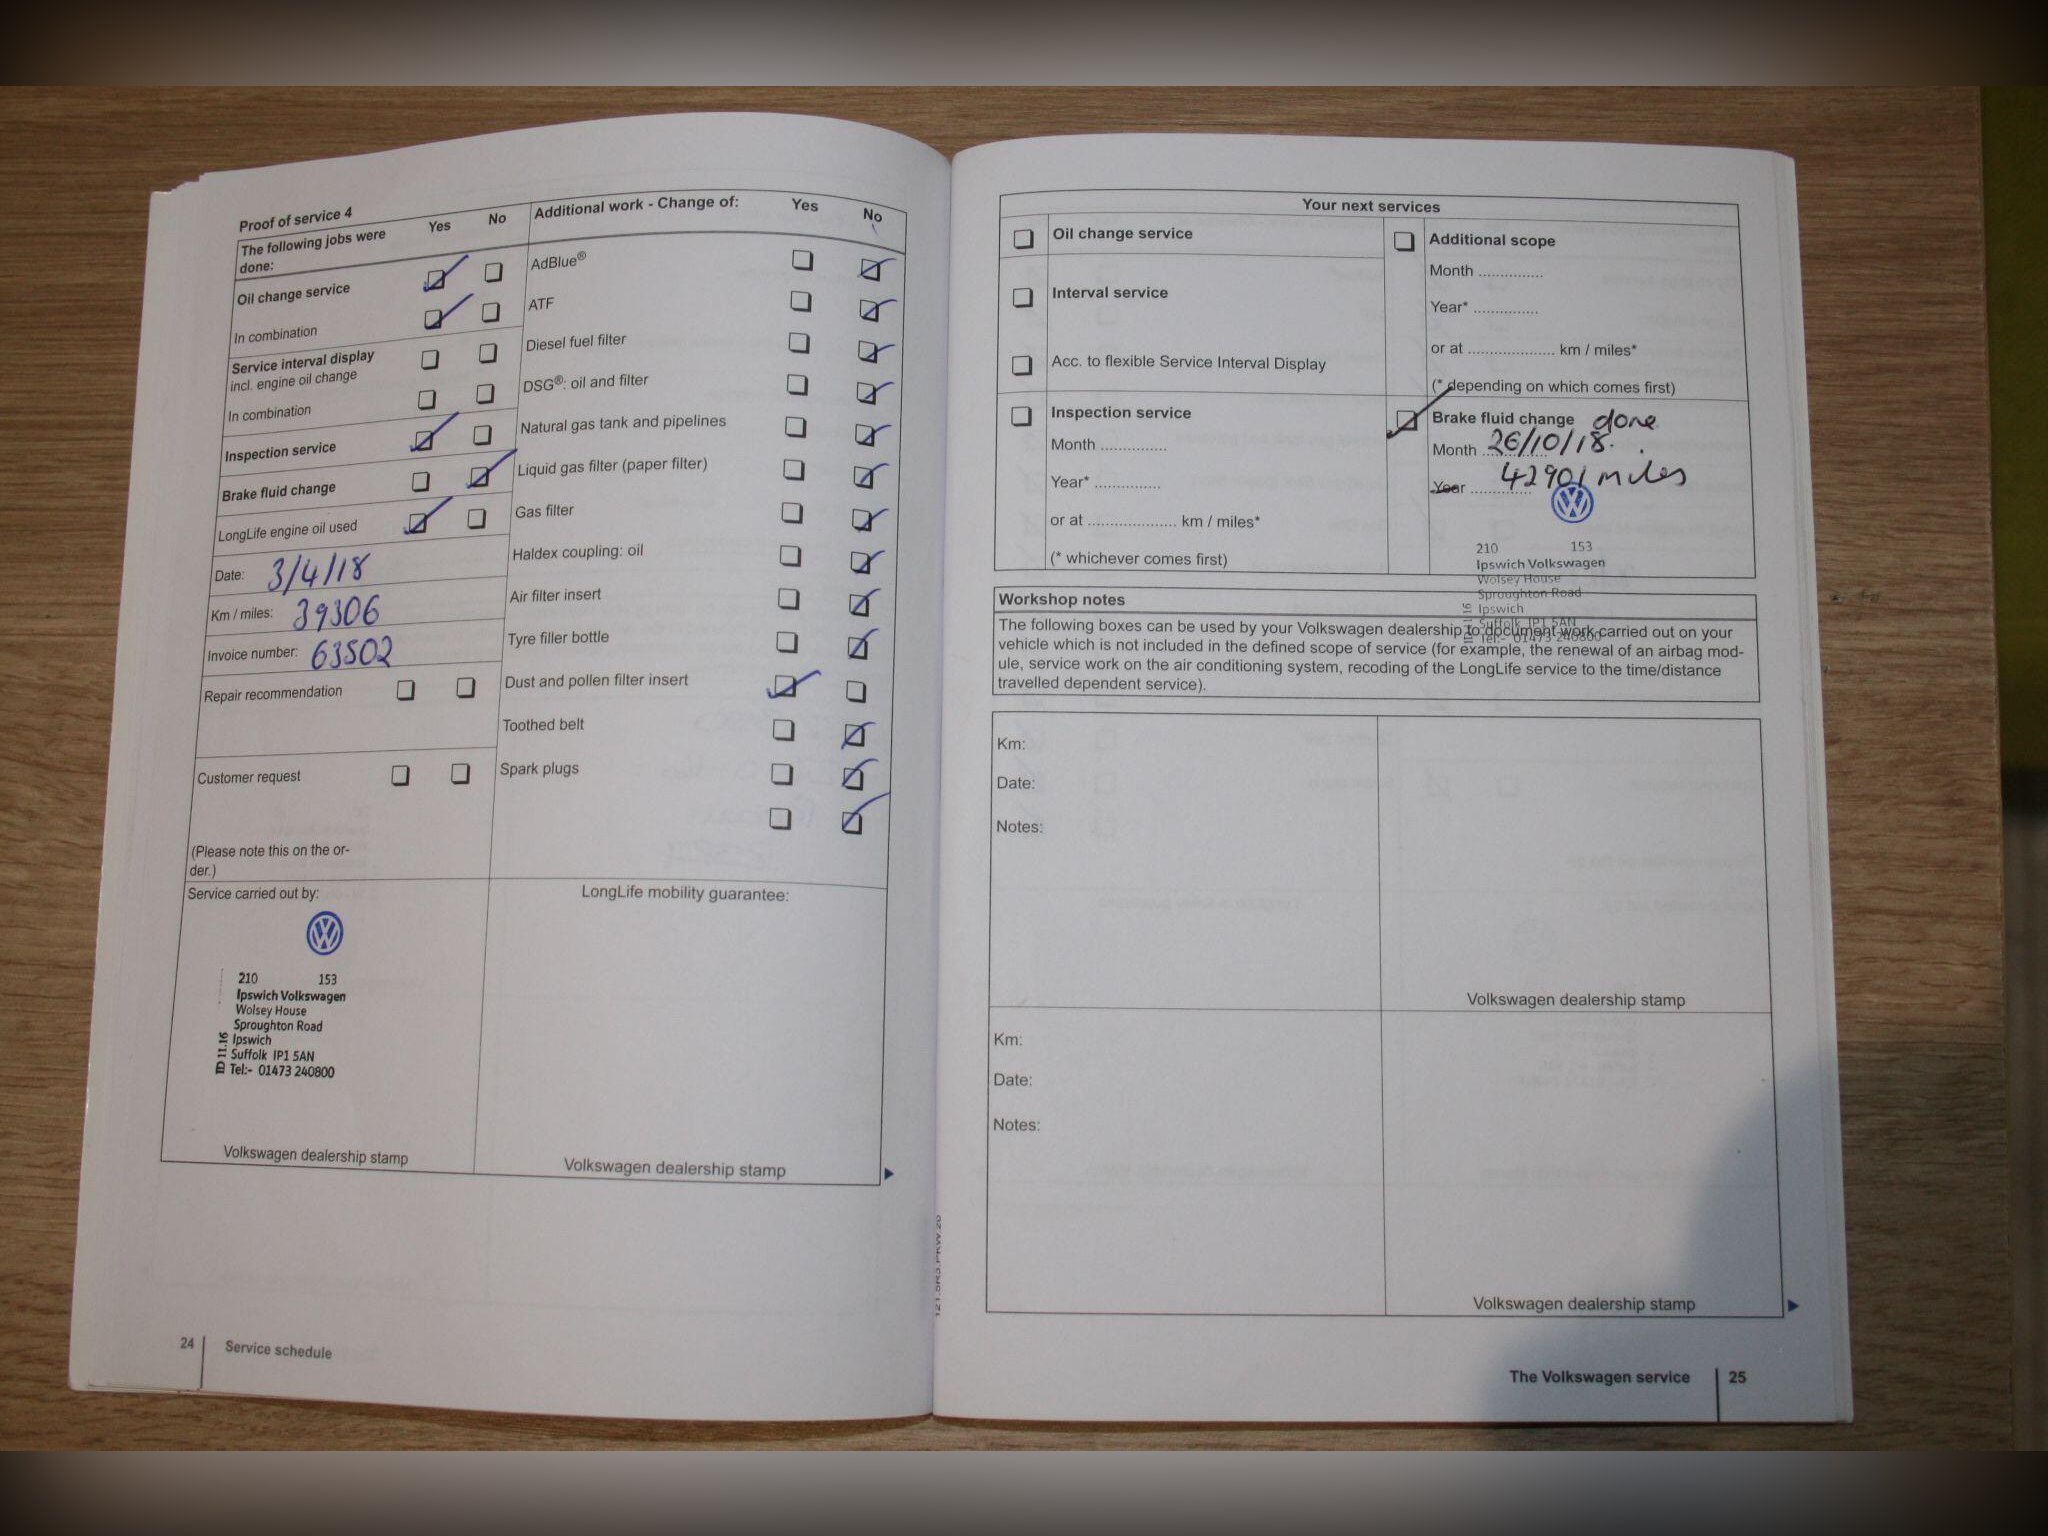 Proof of service 4
The following jobs were
done:
Yes No
Oil change service
In combination
Service interval display
incl. engine oil change
In combination
Inspection service
Brake fluid change
LongLife engine oil used
Date: 3/4/18
Km / miles: 39306
Invoice number: 63502
Repair recommendation
Customer request
(Please note this on the or-
der.)
Additional work - Change of: Yes No
AdBlue®
ATF
Diesel fuel filter
DSG®: oil and filter
Natural gas tank and pipelines
Liquid gas filter (paper filter)
Gas filter
Haldex coupling: oil
Air filter insert
Tyre filler bottle
Dust and pollen filter insert
Toothed belt
Spark plugs
Service carried out by:
210 153
Ipswich Volkswagen
Wolsey House
Sproughton Road
Ipswich
Suffolk IP1 5AN
Tel:- 01473 240800
ID 11.16
Volkswagen dealership stamp
LongLife mobility guarantee:
Volkswagen dealership stamp
24 Service schedule
Your next services
Oil change service
Interval service
Acc. to flexible Service Interval Display
Inspection service
Month ...............
Year* ...............
or at .................... km / miles*
(* whichever comes first)
Additional scope
Month ...............
Year* ...............
or at .................... km / miles*
(* depending on which comes first)
Brake fluid change done
Month 26/10/18.
Year 42901 miles
210 153
Ipswich Volkswagen
Wolsey House
Sproughton Road
Ipswich
Suffolk IP1 5AN
Tel:- 01473 240800
Workshop notes
The following boxes can be used by your Volkswagen dealership to document work carried out on your
vehicle which is not included in the defined scope of service (for example, the renewal of an airbag mod-
ule, service work on the air conditioning system, recoding of the LongLife service to the time/distance
travelled dependent service).
Km:
Date:
Notes:
Volkswagen dealership stamp
Km:
Date:
Notes:
Volkswagen dealership stamp
The Volkswagen service 25